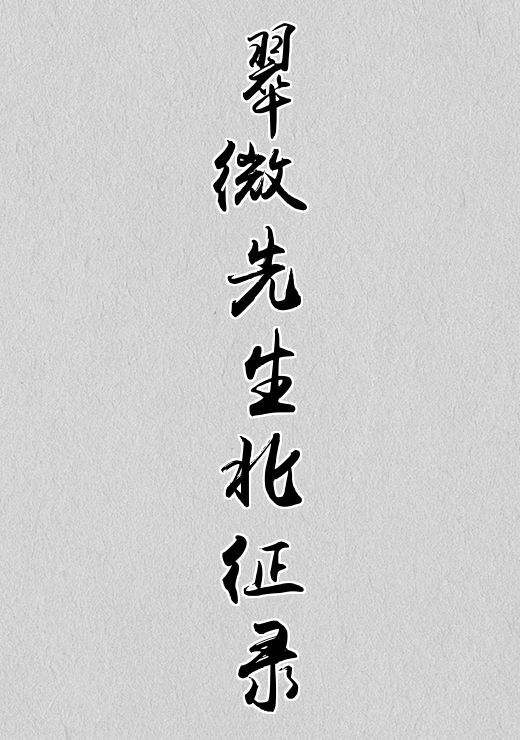 翠微先生北征录